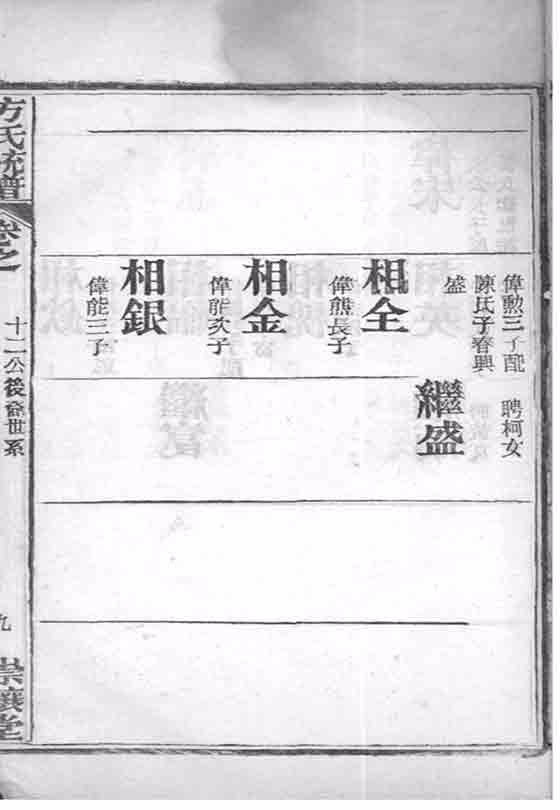 偉勳三子配
陳氏子春興
盛
聘柯女
繼盛
相全
偉熊長子
相金
偉能次子
相銀
偉能三子
方氏統譜
卷之一
十二公後裔世系
九
崇讓堂